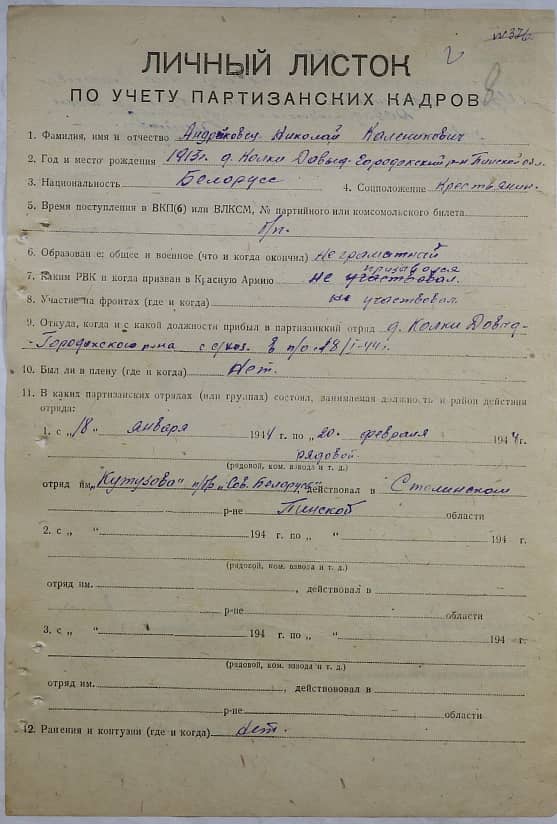 ЛИЧНЫЙ ЛИСТОК
ПО УЧЕТУ ПАРТИЗАНСКИХ КАДРОВ
1. Фамилия, имя и отчество Андрековец Николай Каленикович
2. Год и место рождения 1913г. д. Колки Давыд-Городокский р-н Пинской обл.
3. Национальность Белорусс 4. Соцположение Крестьянин.
5. Время поступления в ВКП(б) или ВЛКСМ, № партийного или комсомольского билета
б/п.
6. Образование: общее и военное (что и когда окончил) не граматный
7. Каким РВК и когда призван в Красную Армию не призывался
8. Участие на фронтах (где и когда) не участвовал.
9. Откуда, когда и с какой должности прибыл в партизанский отряд д. Колки Давыд-
Городокского р-на с с/хоз. в п/о 18/I-44г.
10. Был ли в плену (где и когда) Нет.
11. В каких партизанских отрядах (или группах) состоял, занимаемая должность и район действия
отряда:
1. с „18" января 1944 г. по „20" февраля 1944 г.
рядовой.
(рядовой, ком. взвода и т. д.)
отряд им. „Кутузова" п/бр „Сов. Беларусь", действовал в Столинском
р-не Пинской области
2. с „ “ 194 г. по „ “ 194 г.
(рядовой, ком. взвода и т. д.)
отряд им. , действовал в
р-не области
3. с „ “ 194 г. по „ “ 194 г.
(рядовой, ком. взвода и т. д.)
отряд им. , действововал в
р-не области
12. Ранения и контузии (где и когда) Нет.